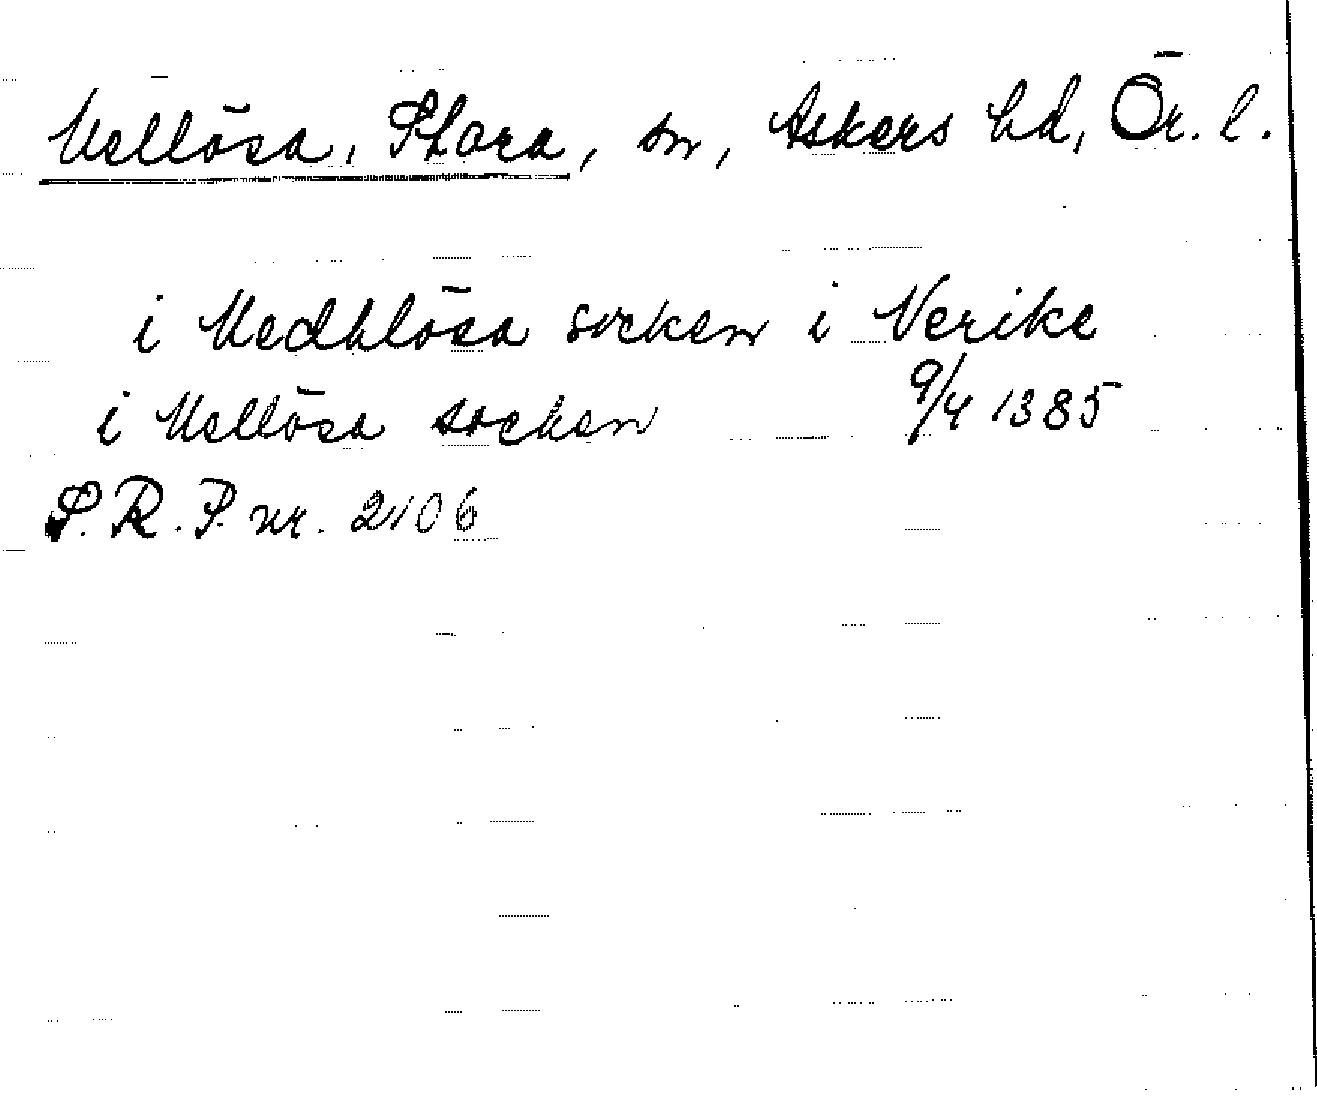 Mellösa, Stora, sn, Askers hd, Ör. l.
i Medhlösa socken i Nerike
i Mellösa socken 9/4 1385
S. R. P. nr. 2106